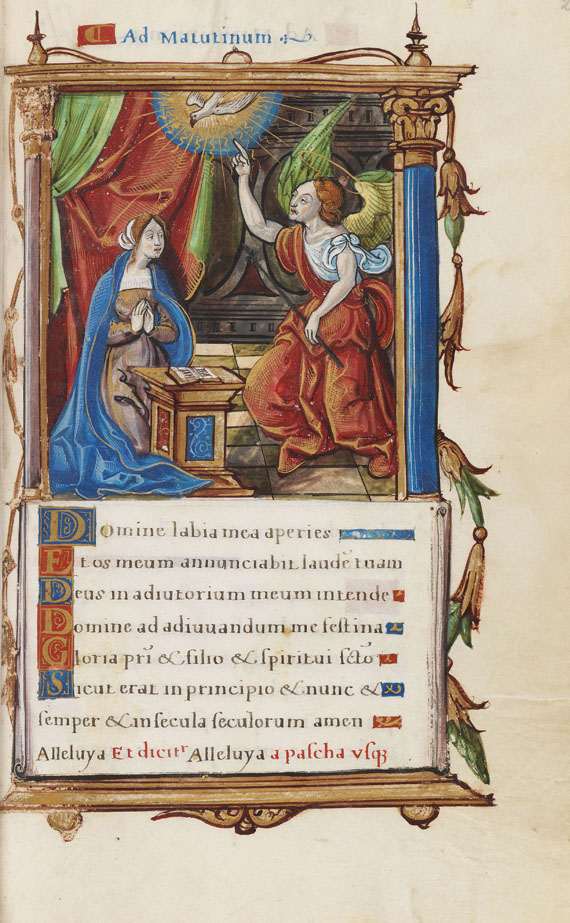 Ad Matutinum
Domine labia mea aperies
Et os meum annunciabit laudē tuam
Deus in adiutorium meum intende
Domine ad adiuuandum me festina
Gloria pr̄i & filio & spiritui sc̄to
Sicut erat in principio & nunc &
semper & in secula seculorum amen
Alleluya Et dicitr Alleluya a pascha vsq;